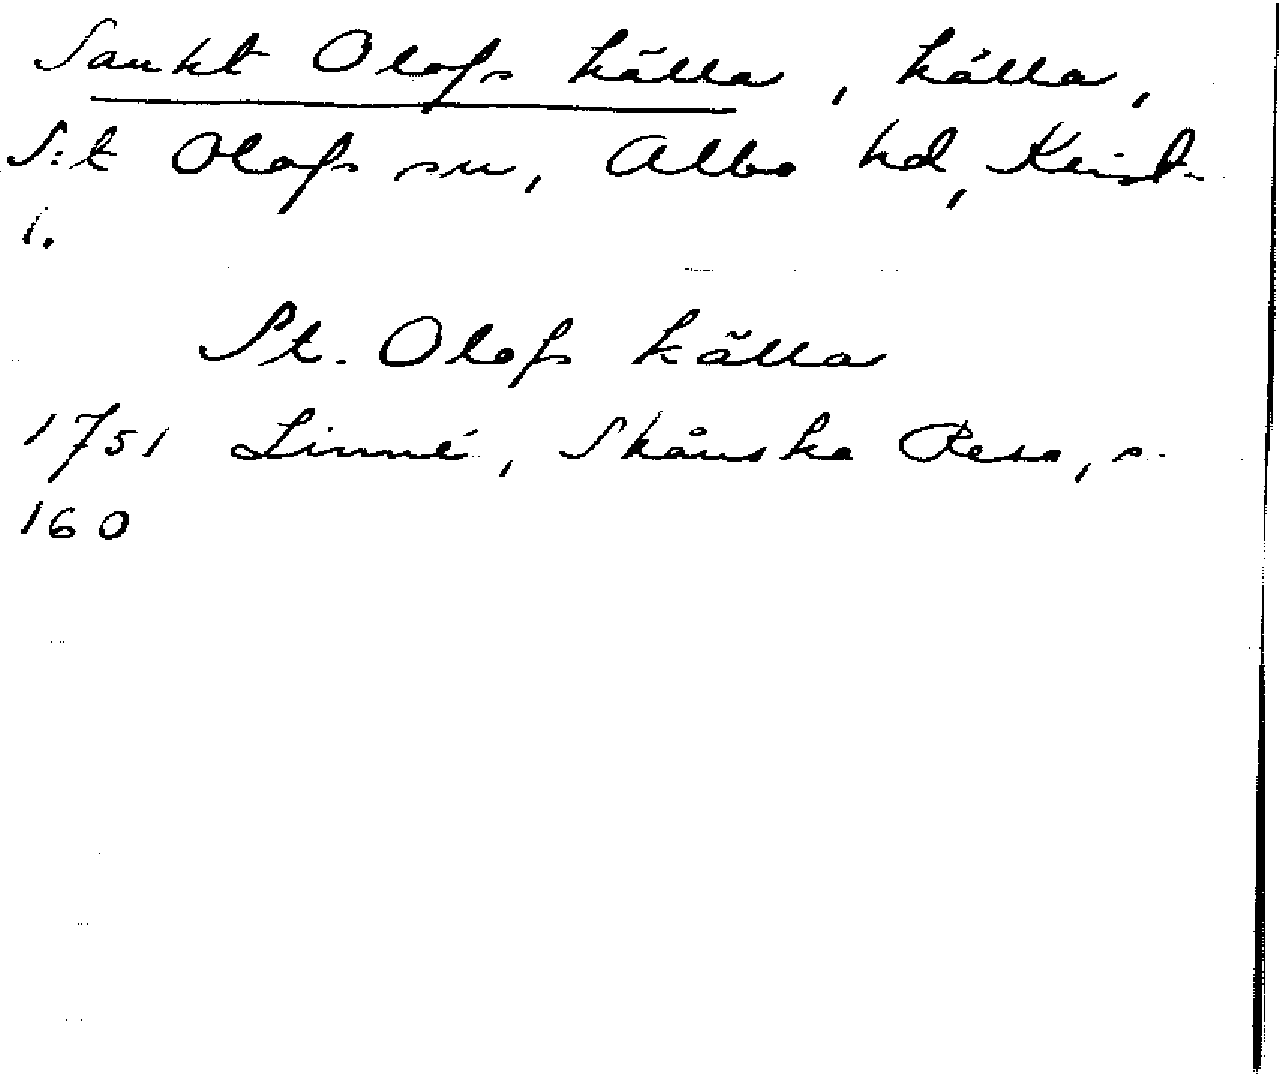 Sankt Olofs källa, källa,
S:t Olofs sn, Albo hd, Krist.
l.
St. Olofs källa
1751 Linné, Skånska Resa, s.
160